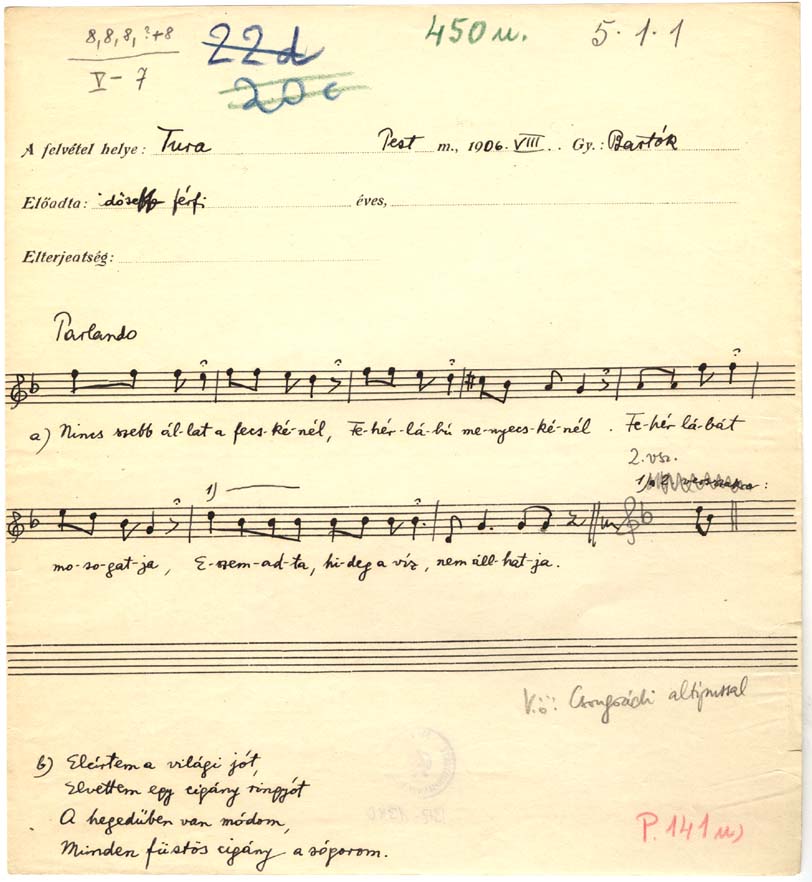 8, 8, 8, ?+8
V - 7
22d
20c
450 u.
5. 1. 1
A felvétel helye: Tura Pest m., 1906. VIII. Gy.: Bartók
Előadta: idősebb férfi éves,
Elterjedtség:
Parlando
a) Nincs szebb ál-lat a fecs-ké-nél, Fe-hér-lá-bú me-nyecs-ké-nél. Fe-hér lá-bát
2. vsz.
1)
mo-so-gat-ja, E-szem-ad-ta, hi-deg a víz, nem áll-hat-ja.
V.ö: Csongrádi altípussal
b) Elértem a világi jót,
Elvettem egy cigány ringyót
A hegedűben van módom,
Minden füstös cigány a sógorom.
P. 141 u)